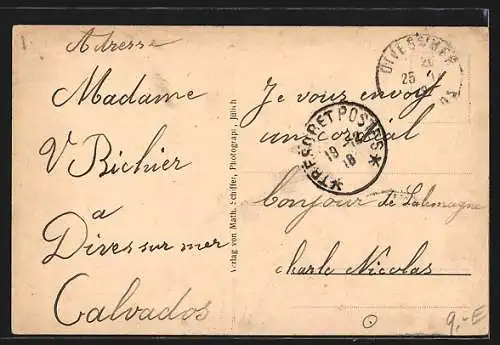 1.-
Adresse
Madame
V Bichier
a
Dives sur mer
Calvados
Verlag von Math. Schiffer, Photograph, Jülich
DIVES S MER
25
TRESOR ET POSTES
18
Je vous envoy
un cordial
bonjour de Lalemagne
charle Nicolas
9,-E